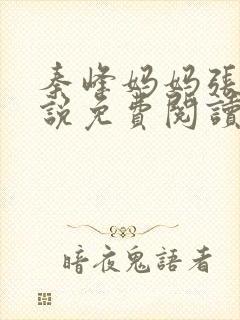 秦峰妈妈张
說免費閱讀
暗夜鬼語者